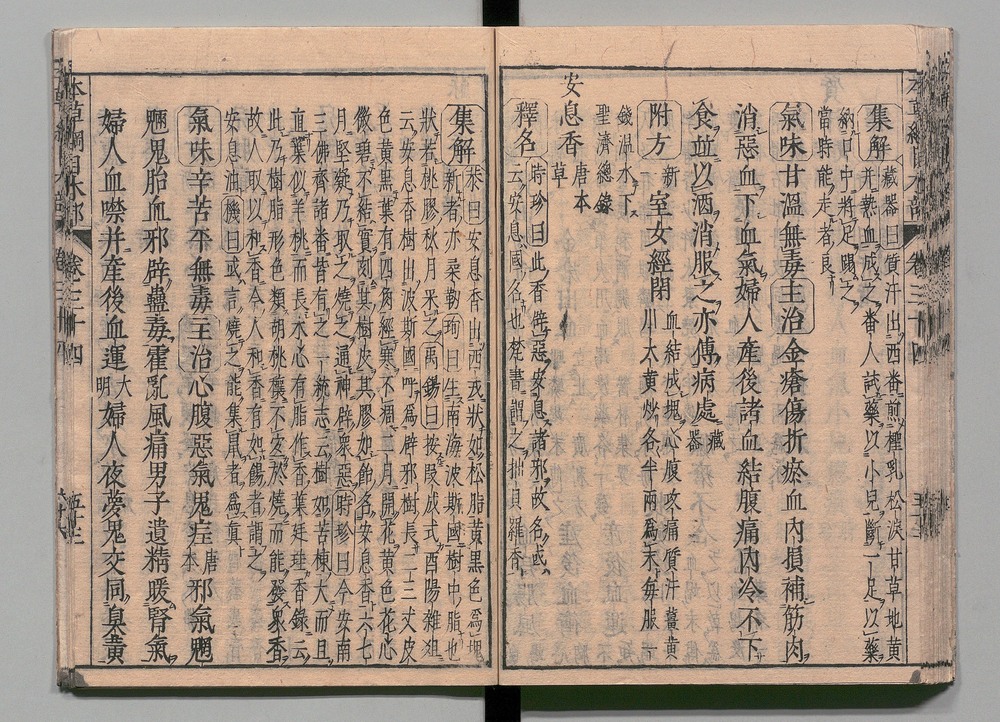 本草綱目木部 卷三十四
集解 藏器曰質汗出西番煎檉乳松淚甘草地黃
并熱血成之番人試藥以小兒斷一足以藥
納口中將足蹋之
當時能走者良
氣味甘溫無毒主治金瘡傷折瘀血內損補筋肉
消惡血下血氣婦人產後諸血結腹痛內冷不下
食並以酒消服之亦傅病處藏器
附方新一室女經閉血結成塊心腹攻痛質汗薑黃
川大黃炒各半兩爲末每服一
錢溫水下
聖濟總錄
安息香唐本草
釋名時珍曰此香辟惡安息諸邪故名或
云安息國名也梵書謂之拙貝羅香
集解恭曰安息香出西戎狀如松脂黃黑色爲塊
新者亦柔韌珣曰生南海波斯國樹中脂也
狀若桃膠秋月采之禹錫曰按段成式酉陽雜俎
云安息香樹出波斯國呼爲辟邪樹長二三丈皮
色黃黑葉有四角經寒不凋二月開花黃色花心
微碧不結實刻其樹皮其膠如飴名安息香六七
月堅凝乃取之燒之通神辟衆惡時珍曰今安南
三佛齊諸番皆有之一統志云樹如苦棟大而且
直葉似羊桃而長木心有脂作香葉廷珪香錄云
此乃樹脂形色類胡桃瓤不宜於燒而能發衆香
故人取以和香今人和香有如餳者謂之
安息油機曰或言燒之能集鼠者爲真
氣味辛苦平無毒主治心腹惡氣鬼疰唐本邪氣魍
魎鬼胎血邪辟蠱毒霍亂風痛男子遺精暖腎氣
婦人血噤并產後血運大明婦人夜夢鬼交同臭黃
本草綱目木部 卷三十四